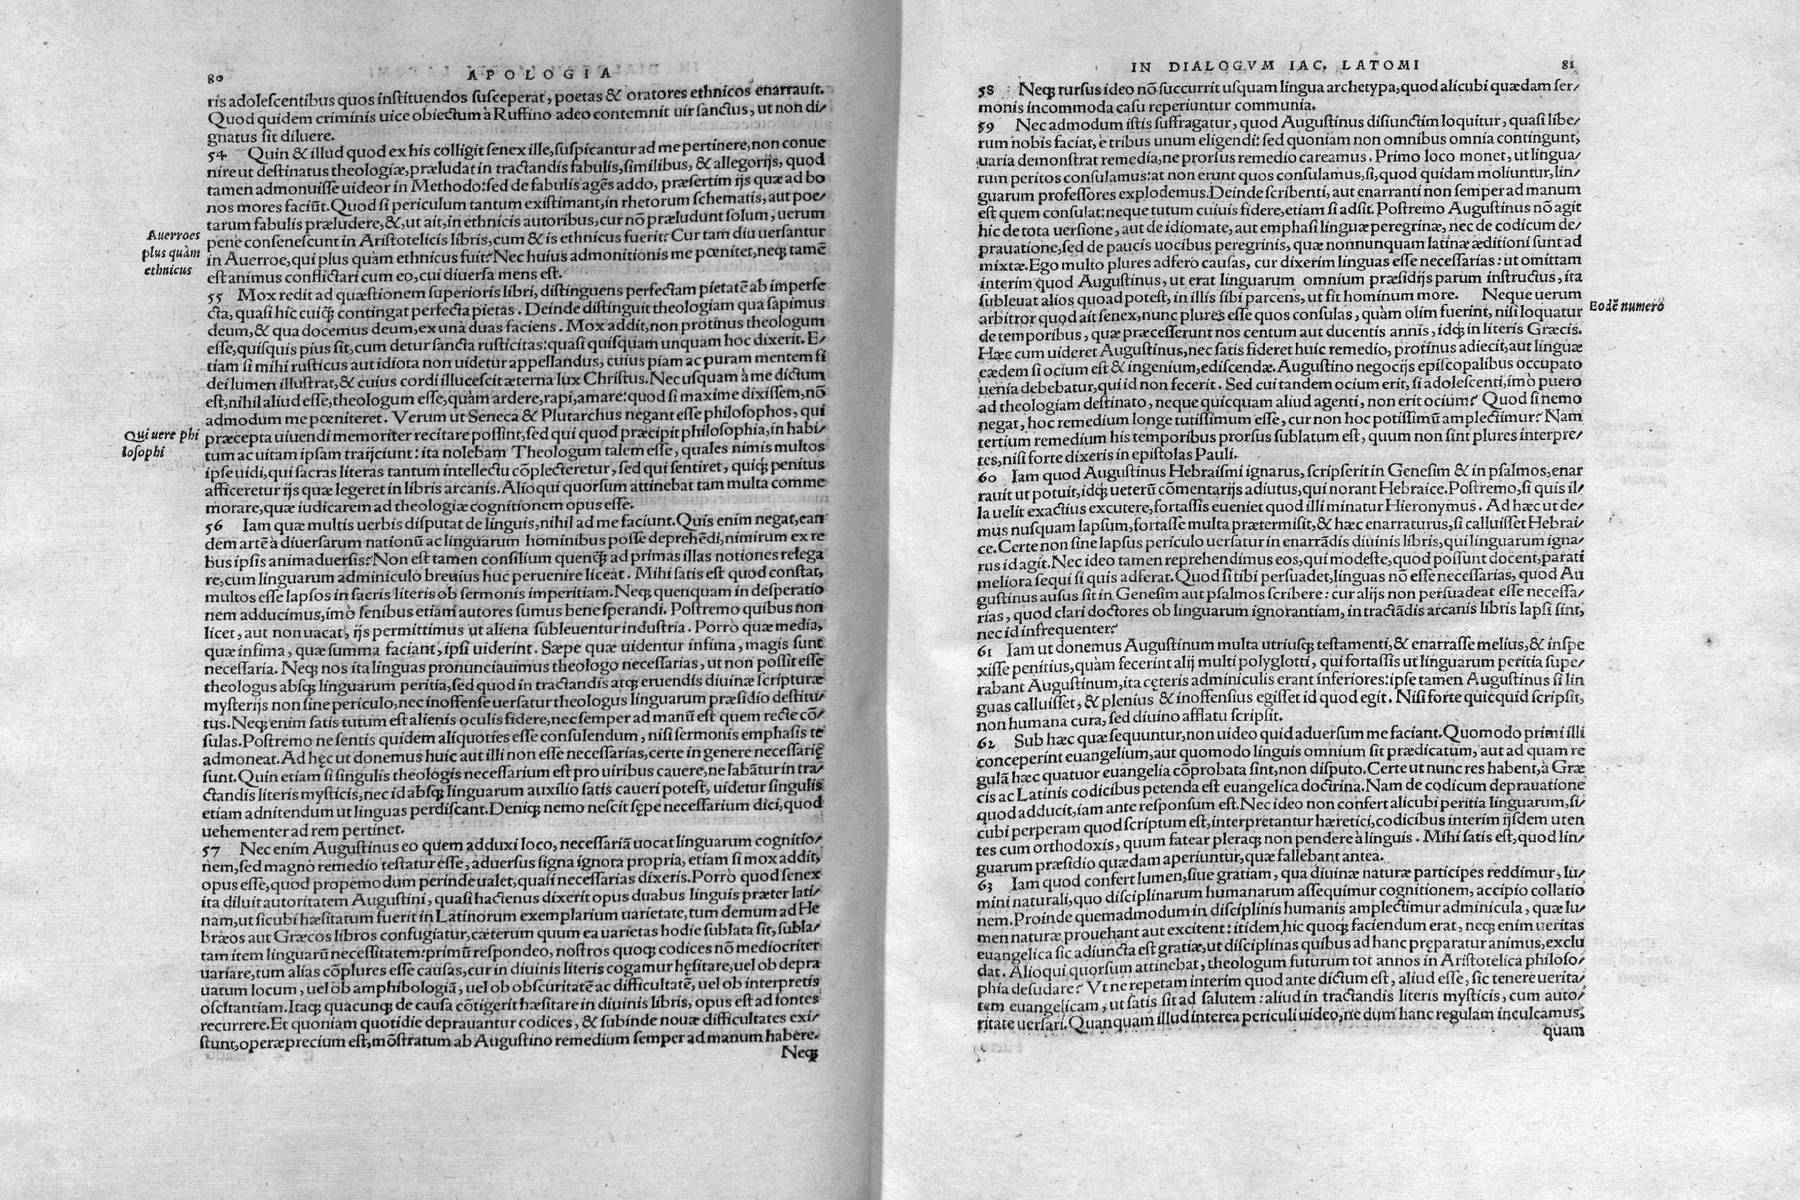 80
APOLOGIA
ris adolescentibus quos instituendos susceperat, poetas & oratores ethnicos enarrauit.
Quod quidem criminis uice obiectum à Ruffino adeo contemnit uir sanctus, ut non di/
gnatus sit diluere.
54 Quin & illud quod ex his colligit senex ille, suspicantur ad me pertinere, non conue
nire ut destinatus theologiæ, præludat in tractandis fabulis, similibus, & allegorijs, quod
tamen admonuisse uideor in Methodo: sed de fabulis agẽs addo, præsertim ijs quæ ad bo
nos mores faciũt. Quod si periculum tantum existimant, in rhetorum schematis, aut poe/
tarum fabulis præludere, &, ut ait, in ethnicis autoribus, cur nõ præludunt solum, uerum
Auerroes
plus quàm
ethnicus
penè consenescunt in Aristotelicis libris, cum & is ethnicus fuerit? Cur tam diu uersantur
in Auerroe, qui plus quàm ethnicus fuit? Nec huius admonitionis me pœnitet, neq; tamẽ
est animus conflictari cum eo, cui diuersa mens est.
55 Mox redit ad quæstionem superioris libri, distinguens perfectam pietatẽ ab imperfe
cta, quasi hîc cuiq; contingat perfecta pietas. Deinde distinguit theologiam qua sapimus
deum, & qua docemus deum, ex una duas faciens. Mox addit, non protinus theologum
esse, quisquis pius sit, cum detur sancta rusticitas: quasi quisquam unquam hoc dixerit. E/
tiam si mihi rusticus aut idiota non uidetur appellandus, cuius piam ac puram mentem fi
dei lumen illustrat, & cuius cordi illucescit æterna lux Christus. Nec usquam à me dictum
est, nihil aliud esse, theologum esse, quàm ardere, rapi, amare: quod si maxime dixissem, nõ
admodum me pœniteret. Verum ut Seneca & Plutarchus negant esse philosophos, qui
Qui uere phi
losophi
præcepta uiuendi memoriter recitare possint, sed qui quod præcipit philosophia, in habi/
tum ac uitam ipsam traijciunt: ita nolebam Theologum talem esse, quales nimis multos
ipse uidi, qui sacras literas tantum intellectu cõplecteretur, sed qui sentiret, quiq; penitus
afficeretur ijs quæ legeret in libris arcanis. Alioqui quorsum attinebat tam multa comme
morare, quæ iudicarem ad theologiæ cognitionem opus esse.
56 Iam quæ multis uerbis disputat de linguis, nihil ad me faciunt. Quis enim negat, ean
dem artẽ à diuersarum nationũ ac linguarum hominibus posse deprehẽdi, nimirum ex re
bus ipsis animaduersis? Non est tamen consilium quenq̃ ad primas illas notiones relega
re, cum linguarum adminiculo breuius huc peruenire liceat. Mihi satis est quod constat,
multos esse lapsos in sacris literis ob sermonis imperitiam. Neq; quenquam in desperatio
nem adducimus, imò senibus etiam autores sumus bene sperandi. Postremo quibus non
licet, aut non uacat, ijs permittimus ut aliena subleuentur industria. Porrò quæ media,
quæ infima, quæ summa faciant, ipsi uiderint. Sæpe quæ uidentur infima, magis sunt
necessaria. Neq; nos ita linguas pronunciauimus theologo necessarias, ut non possit esse
theologus absq; linguarum peritia, sed quod in tractandis atq; eruendis diuinæ scripturæ
mysterijs non sine periculo, nec inoffense uersatur theologus linguarum præsidio destitu/
tus. Neq; enim satis tutum est alienis oculis fidere, nec semper ad manũ est quem recte cõ/
sulas. Postremo ne sentis quidem aliquoties esse consulendum, nisi sermonis emphasis te
admoneat. Ad hęc ut donemus huic aut illi non esse necessarias, certe in genere necessarię
sunt. Quin etiam si singulis theologis necessarium est pro uiribus cauere, ne labãtur in tra/
ctandis literis mysticis, nec id absq; linguarum auxilio satis caueri potest, uidetur singulis
etiam adnitendum ut linguas perdiscant. Deniq; nemo nescit sępe necessarium dici, quod
uehementer ad rem pertinet.
57 Nec enim Augustinus eo quem adduxi loco, necessariã uocat linguarum cognitio/
nem, sed magno remedio testatur esse, aduersus signa ignota propria, etiam si mox addit,
opus esse, quod propemodum perinde ualet, quasi necessarias dixeris. Porrò quod senex
ita diluit autoritatem Augustini, quasi hactenus dixerit opus duabus linguis præter lati/
nam, ut sicubi hæsitatum fuerit in Latinorum exemplarium uarietate, tum demum ad He
bræos aut Græcos libros confugiatur, cæterum quum ea uarietas hodie sublata sit, subla/
tam item linguarũ necessitatem: primũ respondeo, nostros quoq; codices nõ mediocriter
uariare, tum alias cõplures esse causas, cur in diuinis literis cogamur hęsitare, uel ob depra
uatum locum, uel ob amphibologiã, uel ob obscuritatẽ ac difficultatẽ, uel ob interpretis
oscitantiam. Itaq; quacunq; de causa cõtigerit hæsitare in diuinis libris, opus est ad fontes
recurrere. Et quoniam quotidie deprauantur codices, & subinde nouæ difficultates exi/
stunt, operæprecium est, mõstratum ab Augustino remedium semper ad manum habere.
Neq;
IN DIALOGVM IAC. LATOMI
81
58 Neq; rursus ideo nõ succurrit usquam lingua archetypa, quod alicubi quædam ser/
monis incommoda casu reperiuntur communia.
59 Nec admodum istis suffragatur, quod Augustinus disiunctim loquitur, quasi libe/
rum nobis faciat, è tribus unum eligendi: sed quoniam non omnibus omnia contingunt,
uaria demonstrat remedia, ne prorsus remedio careamus. Primo loco monet, ut lingua/
rum peritos consulamus: at non erunt quos consulamus, si, quod quidam moliuntur, lin/
guarum professores explodemus. Deinde scribenti, aut enarranti non semper ad manum
est quem consulat: neque tutum cuiuis fidere, etiam si adsit. Postremo Augustinus nõ agit
hic de tota uersione, aut de idiomate, aut emphasi linguæ peregrinæ, nec de codicum de/
prauatione, sed de paucis uocibus peregrinis, quæ nonnunquam latinæ æditioni sunt ad
mixtæ. Ego multo plures adfero causas, cur dixerim linguas esse necessarias: ut omittam
interim quod Augustinus, ut erat linguarum omnium præsidijs parum instructus, ita
subleuat alios quoad potest, in illis sibi parcens, ut fit hominum more. Neque uerum
Eodẽ numero
arbitror quod ait senex, nunc plures esse quos consulas, quàm olim fuerint, nisi loquatur
de temporibus, quæ præcesserunt nos centum aut ducentis annis, idq; in literis Græcis.
Hæc cum uideret Augustinus, nec satis fideret huic remedio, protinus adiecit, aut linguæ
eædem si ocium est & ingenium, ediscendæ. Augustino negocijs episcopalibus occupato
uenia debebatur, qui id non fecerit. Sed cui tandem ocium erit, si adolescenti, imò puero
ad theologiam destinato, neque quicquam aliud agenti, non erit ocium? Quod si nemo
negat, hoc remedium longe tutissimum esse, cur non hoc potissimũ amplectimur? Nam
tertium remedium his temporibus prorsus sublatum est, quum non sint plures interpre/
tes, nisi forte dixeris in epistolas Pauli.
60 Iam quod Augustinus Hebraismi ignarus, scripserit in Genesim & in psalmos, enar
rauit ut potuit, idq; ueterũ cõmentarijs adiutus, qui norant Hebraice. Postremo, si quis il/
la uelit exactius excutere, fortassis eueniet quod illi minatur Hieronymus. Ad hæc ut de/
mus nusquam lapsum, fortasse multa prætermisit, & hæc enarraturus, si calluisset Hebrai/
ce. Certe non sine lapsus periculo uersatur in enarrãdis diuinis libris, qui linguarum igna/
rus id agit. Nec ideo tamen reprehendimus eos, qui modeste, quod possunt docent, parati
meliora sequi si quis adferat. Quod si tibi persuadet, linguas nõ esse necessarias, quod Au
gustinus ausus sit in Genesim aut psalmos scribere: cur alijs non persuadeat esse necessa/
rias, quod clari doctores ob linguarum ignorantiam, in tractãdis arcanis libris lapsi sint,
nec id infrequenter?
61 Iam ut donemus Augustinum multa utriusq; testamenti, & enarrasse melius, & inspe
xisse penitius, quàm fecerint alij multi polyglotti, qui fortassis ut linguarum peritia supe/
rabant Augustinum, ita cęteris adminiculis erant inferiores: ipse tamen Augustinus si lin
guas calluisset, & plenius & inoffensius egisset id quod egit. Nisi forte quicquid scripsit,
non humana cura, sed diuino afflatu scripsit.
62 Sub hæc quæ sequuntur, non uideo quid aduersum me faciant. Quomodo primi illi
conceperint euangelium, aut quomodo linguis omnium sit prædicatum, aut ad quam re
gulã hæc quatuor euangelia cõprobata sint, non disputo. Certe ut nunc res habent, à Græ
cis ac Latinis codicibus petenda est euangelica doctrina. Nam de codicum deprauatione
quod adducit, iam ante responsum est. Nec ideo non confert alicubi peritia linguarum, si/
cubi perperam quod scriptum est, interpretantur hæretici, codicibus interim ijsdem uten
tes cum orthodoxis, quum fatear pleraq; non pendere à linguis. Mihi satis est, quod lin/
guarum præsidio quædam aperiuntur, quæ fallebant antea.
63 Iam quod confert lumen, siue gratiam, qua diuinæ naturæ participes reddimur, lu/
mini naturali, quo disciplinarum humanarum assequimur cognitionem, accipio collatio
nem. Proinde quemadmodum in disciplinis humanis amplectimur adminicula, quæ lu/
men naturæ prouehant aut excitent: itidem hîc quoq; faciendum erat, neq; enim ueritas
euangelica sic adiuncta est gratiæ, ut disciplinas quibus ad hanc præparatur animus, exclu
dat. Alioqui quorsum attinebat, theologum futurum tot annos in Aristotelica philoso/
phia desudare? Vt ne repetam interim quod ante dictum est, aliud esse, sic tenere uerita/
tem euangelicam, ut satis sit ad salutem: aliud in tractandis literis mysticis, cum auto/
ritate uersari. Quanquam illud interea periculi uideo, ne dum hanc regulam inculcamus,
quam